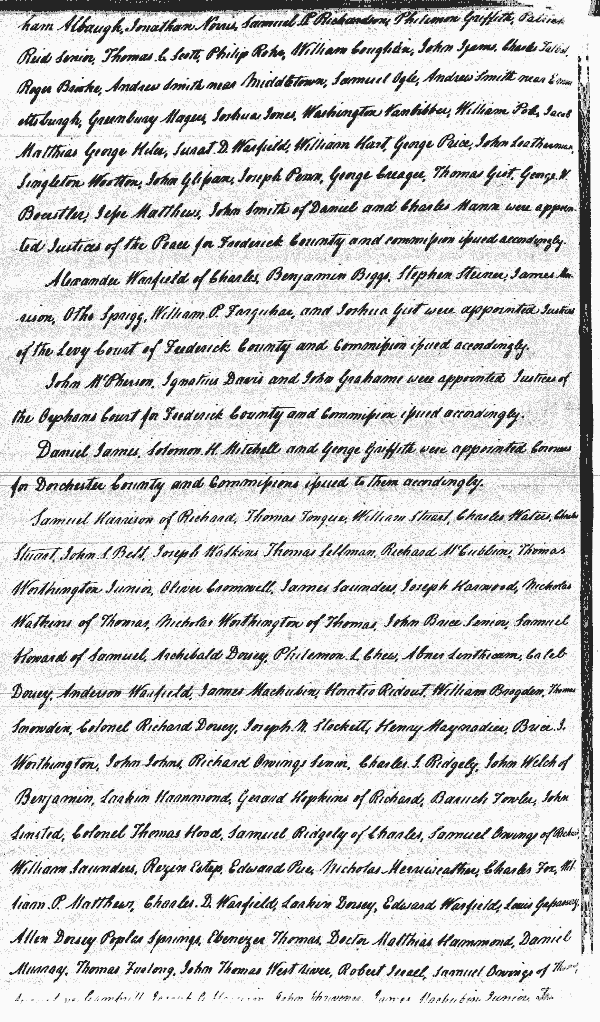 ham Albaugh, Jonathan Norris, Samuel P. Richardson, Philemon Griffith, Patrick
Reid Senior, Thomas C. Scott, Philip Rohr, William Coughlin, John Ijams, Charles
Roger Brooke, Andrew Smith near Middletown, Samuel Ogle, Andrew Smith near Emm
ettsburgh, Greenbury Magers, Joshua Jones, Washington Vanbibber, William Pole, Jacob
Matthias George Hiler, Surat D. Warfield, William Hart, George Price, John Leatherman,
Singleton Wootton, John Glisan, Joseph Penn, George Creager, Thomas Gist, George W.
Boerstler, Jesse Matthews, John Smith of Daniel and Charles Mann were appoin
ted Justices of the Peace for Frederick County and commission issued accordingly.
Alexander Warfield of Charles, Benjamin Biggs, Stephen Steiner, James Mor
rison, Otho Sprigg, William P. Farquhar, and Joshua Gist were appointed Justices
of the Levy Court of Frederick County and Commission issued accordingly.
John McPherson, Ignatius Davis and John Grahame were appointed Justices of
the Orphans Court for Frederick County and Commission issued accordingly.
Daniel James, Solomon H. Mitchell and George Griffith were appointed Coroners
for Dorchester County and Commissions issued to them accordingly.
Samuel Harrison of Richard, Thomas Tongue, William Steuart, Charles Waters, Charles
Steuart, John S Belt, Joseph Watkins Thomas Sellman, Richard McCubbin, Thomas
Worthington Junior, Oliver Cromwell, James Saunders, Joseph Harwood, Nicholas
Watkins of Thomas, Nicholas Worthington of Thomas, John Brice Senior, Samuel
Howard of Samuel, Archibald Dorsey, Philemon L. Chew, Abner Linthicum, Caleb
Dorsey, Anderson Warfield, James Mackubin, Horatio Ridout, William Brogden, Thomas
Snowden, Colonel Richard Dorsey, Joseph N. Stockett, Henry Maynadier, Brice J.
Worthington, John Johns, Richard Owings Senior, Charles S. Ridgely, John Welch of
Benjamin, Larkin Hammond, Gerard Hopkins of Richard, Baruch Fowler, John
Linsted, Colonel Thomas Hood, Samuel Ridgely of Charles, Samuel Owings of
William Saunders, Rezin Estep, Edward Pue, Nicholas Merriweather, Charles Fox, Wil
liam P. Matthews, Charles D. Warfield, Larkin Dorsey, Edward Warfield, Louis Gassaway,
Allen Dorsey Poplar Springs, Ebenezer Thomas, Doctor Matthias Hammond, Daniel
Murray, Thomas Furlong, John Thomas West River, Robert Israel, Samuel Owings of Thomas
John James Mackubin Junior